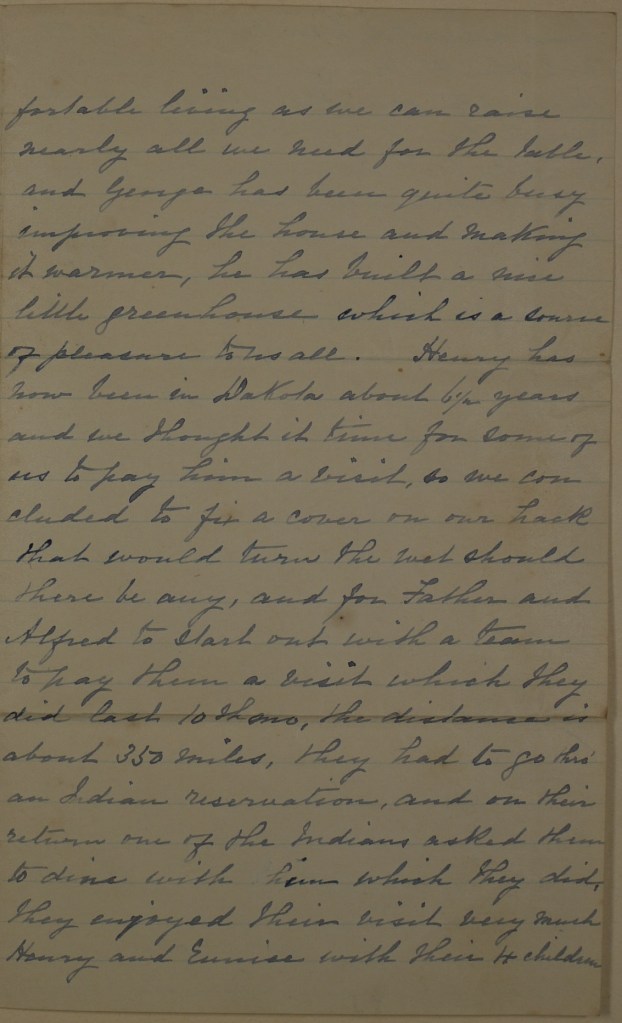 fortable living as we can raise
nearly all we need for the table,
and George has been quite busy
improving the house and making
it warmer, he has built a nice
little greenhouse which is a source
of pleasure to us all. Henry has
now been in Dakota about 6½ years
and we thought it time for some of
us to pay him a visit, so we con
cluded to fix a cover on our hack
that would turn the wet should
there be any, and for Father and
Alfred to start out with a team
to pay them a visit which they
did last 10th mo, the distance is
about 350 miles, they had to go thro'
an Indian reservation, and on their
return one of the Indians asked them
to dine with him which they did,
they enjoyed their visit very much
Henry and Eunise with their 4 children